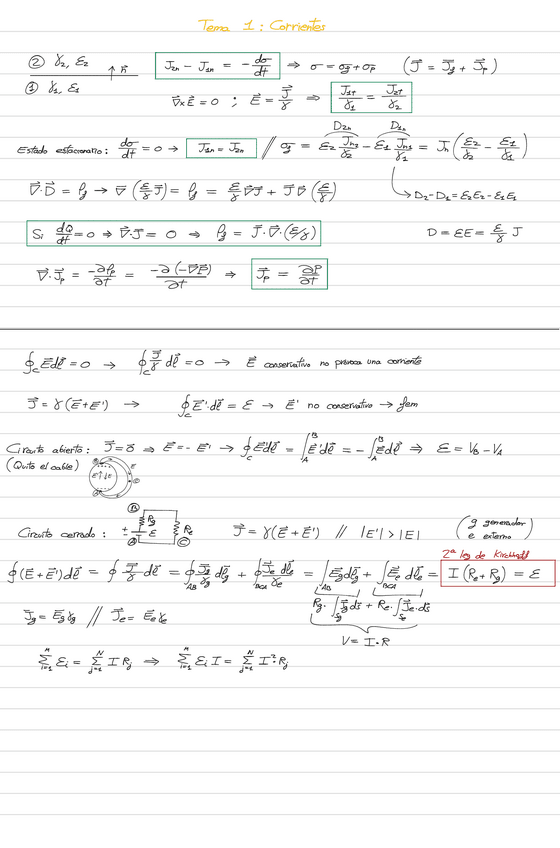 Tema 1: Corrientes
② γ₂, ε₂ ↑ n⃗ J₂ₙ - J₁ₙ = - dσ/dt ⇒ σ = σg + σp (J⃗ = J⃗g + J⃗p)
① γ₁, ε₁
∇×E⃗ = 0 ; E⃗ = J⃗/γ ⇒ J₁t/γ₁ = J₂t/γ₂
D₂ₙ D₁ₙ
Estado estacionario: dσ/dt = 0 → J₁ₙ = J₂ₙ // σg = ε₂ Jn₂/γ₂ - ε₁ Jn₁/γ₁ = Jn (ε₂/γ₂ - ε₁/γ₁)
∇⃗·D⃗ = ρg → ∇⃗ (ε/γ J⃗) = ρg = ε/γ ∇⃗J⃗ + J⃗ ∇⃗ (ε/γ) → D₂ - D₁ = ε₂E₂ - ε₁E₁
Si dQ/dt = 0 → ∇⃗·J⃗ = 0 → ρg = J⃗·∇⃗·(ε/γ) D = εE = ε/γ J
∇⃗·J⃗p = -∂ρp/∂t = -∂(-∇⃗P⃗)/∂t ⇒ J⃗p = ∂P⃗/∂t
∮c E⃗dl⃗ = 0 → ∮c J⃗/γ dl⃗ = 0 → E⃗ conservativo no provoca una corriente
J⃗ = γ(E⃗+E⃗') → ∮c E⃗'·dl⃗ = ε → E⃗' no conservativo → fem
Circuito abierto: J⃗ = 0⃗ ⇒ E⃗ = - E⃗' → ∮c E⃗dl⃗ = ∫A^B E⃗'dl⃗ = - ∫A^B E⃗dl⃗ ⇒ ε = VB - VA
(Quito el cable)
B Rg
Circuito cerrado: ± ε Re J⃗ = γ(E⃗+E⃗') // |E'| > |E| (g generador
A C e externo)
2ª ley de Kirchhoff
∮(E⃗+E⃗')dl⃗ = ∮ J⃗/γ dl⃗ = ∮AB J⃗g/γg dl⃗g + ∮BCA J⃗e/γe dl⃗e = ∫AB E⃗g dl⃗g + ∫BCA E⃗e dl⃗e = I (Re + Rg) = ε
J⃗g = E⃗g γg // J⃗e = E⃗e γe Rg·∫Sg J⃗g ds⃗ + Re·∫Se J⃗e·ds⃗
V = I·R
∑i=1^n εi = ∑j=1^N I Rj ⇒ ∑i=1^n εi I = ∑j=1^N I²·Rj